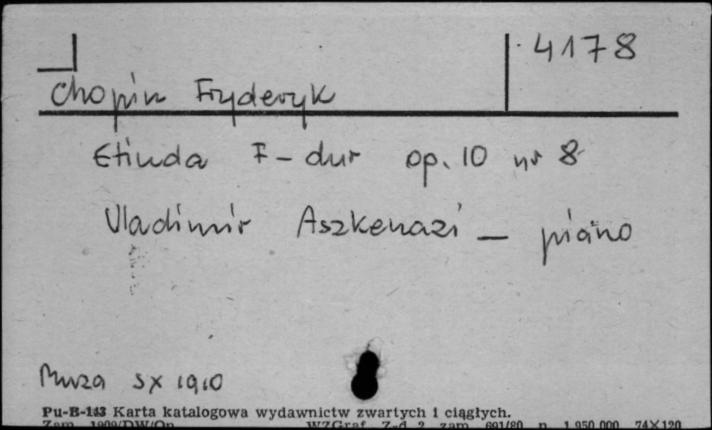 4178
Chopin Fryderyk
Etiuda F-dur op. 10 nr 8
Vladimir Aszkenazi - piano
Muza SX 1910
Pu-B-143 Karta katalogowa wydawnictw zwartych i ciągłych.
WZGraf. Z-d 2 zam. 691/80 n. 1.950.000 74X120